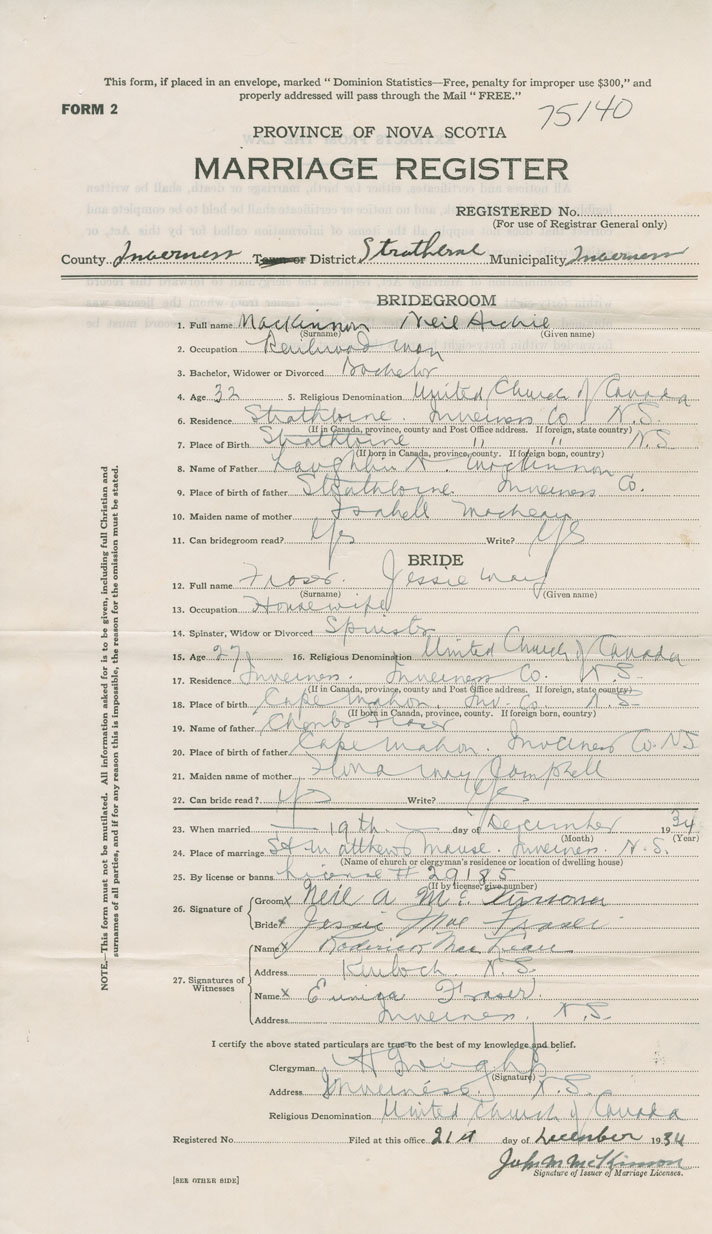 This form, if placed in an envelope, marked " Dominion Statistics—Free, penalty for improper use $300," and
properly addressed will pass through the Mail " FREE."
FORM 2
75140
PROVINCE OF NOVA SCOTIA
MARRIAGE REGISTER
REGISTERED No.
(For use of Registrar General only)
County Inverness Town or District Strathlorne Municipality Inverness
BRIDEGROOM
1. Full name MacKinnon Neil Archie
(Surname) (Given name)
2. Occupation Railroad man
3. Bachelor, Widower or Divorced Bachelor
4. Age 32 5. Religious Denomination United Church of Canada
6. Residence Strathlorne. Inverness Co. N.S.
(If in Canada, province, county and Post Office address. If foreign, state country)
7. Place of Birth Strathlorne " " N.S
(If born in Canada, province, county. If foreign born, country)
8. Name of Father Laughlin MacKinnon
9. Place of birth of father Strathlorne Inverness Co.
10. Maiden name of mother Isabell MacLean
11. Can bridegroom read? Yes Write? Yes
BRIDE
12. Full name Fraser. Jessie May
(Surname) (Given name)
13. Occupation Housewife
14. Spinster, Widow or Divorced Spinster
15. Age 27 16. Religious Denomination United Church of Canada
17. Residence Inverness. Inverness Co. N.S.
(If in Canada, province, county and Post Office address. If foreign, state country)
18. Place of birth Cape Mabou. Inv. Co. N.S-
(If born in Canada, province, county. If foreign born, country)
19. Name of father Fraser
20. Place of birth of father Cape Mabou. Inverness Co. N.S
21. Maiden name of mother May Campbell
22. Can bride read? Yes Write? Yes
23. When married 19th day of December 1934
(Month) (Year)
24. Place of marriage St Matthews Manse. Inverness. N.S.
(Name of church or clergyman's residence or location of dwelling house)
25. By license or banns License # 29185
(If by license, give number)
26. Signature of Groom x Neil A McKinnon
Bride x Jessie Mae Fraser
27. Signatures of Witnesses Name x Roderick MacLean
Address Kinloch. N.S.
Name x Fraser
Address Inverness. N.S.
I certify the above stated particulars are true to the best of my knowledge and belief.
Clergyman
(Signature)
Address Inverness. N.S.
Religious Denomination United Church of Canada
Registered No. Filed at this office 21st day of December 1934
John M McKinnon
Signature of Issuer of Marriage Licenses.
[SEE OTHER SIDE]
NOTE.—This form must not be mutilated. All information asked for is to be given, including full Christian and
surnames of all parties, and if for any reason this is impossible, the reason for the omission must be stated.